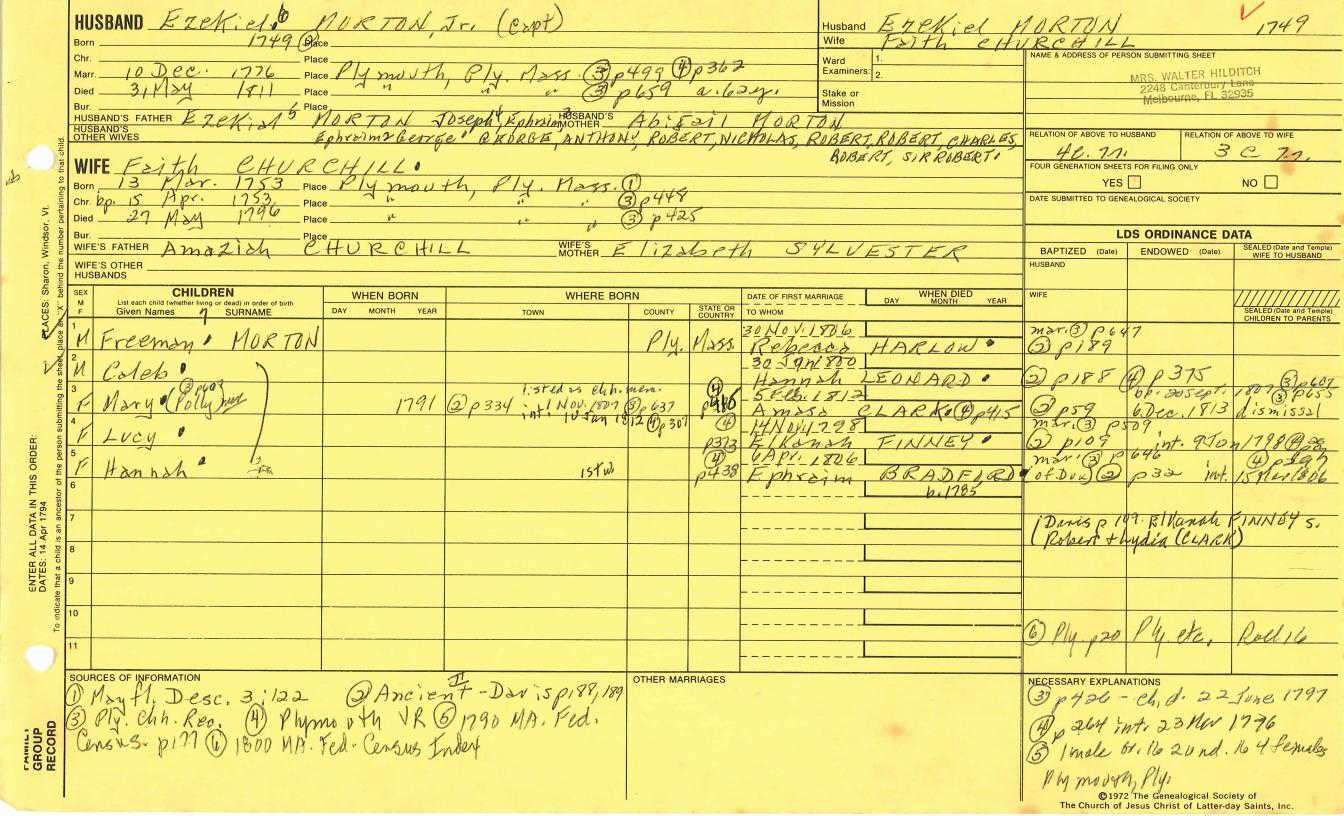 HUSBAND Ezekiel 6 MORTON, Jr. (Capt)
Born 1749 ② Place
Chr. Place
Marr. 10 Dec. 1776 Place Plymouth, Ply. Mass. ③ p499 ④ p362
Died 31 May 1811 Place " " " ③ p659 a. 62y.
Bur. Place
HUSBAND'S FATHER Ezekiel 5 MORTON Joseph 4, Ephraim 3 HUSBAND'S MOTHER Abigail MORTON
HUSBAND'S OTHER WIVES Ephraim 2 George 1 GEORGE, ANTHONY, ROBERT, NICHOLAS, ROBERT, ROBERT, CHARLES,
ROBERT, SIR ROBERT.
Husband Ezekiel MORTON 1749
Wife Faith CHURCHILL
Ward Examiners: 1.
2.
Stake or Mission
NAME & ADDRESS OF PERSON SUBMITTING SHEET
MRS. WALTER HILDITCH
2248 Canterbury Lane
Melbourne, FL 32935
RELATION OF ABOVE TO HUSBAND RELATION OF ABOVE TO WIFE
4c. 7r. 3 c 7r.
FOUR GENERATION SHEETS FOR FILING ONLY
YES NO
DATE SUBMITTED TO GENEALOGICAL SOCIETY
WIFE Faith CHURCHILL
Born 13 Mar. 1753 Place Plymouth, Ply. Mass. ①
Chr. bp. 15 Apr. 1753 Place " " " ③ p448
Died 27 May 1796 Place " " ③ p425
Bur. Place
WIFE'S FATHER Amaziah CHURCHILL WIFE'S MOTHER Elizabeth SYLVESTER
WIFE'S OTHER HUSBANDS
LDS ORDINANCE DATA
BAPTIZED (Date) ENDOWED (Date) SEALED (Date and Temple) WIFE TO HUSBAND
HUSBAND
WIFE
SEALED (Date and Temple) CHILDREN TO PARENTS
SEX M F
CHILDREN
List each child (whether living or dead) in order of birth
Given Names 7 SURNAME
WHEN BORN
DAY MONTH YEAR
WHERE BORN
TOWN COUNTY STATE OR COUNTRY
DATE OF FIRST MARRIAGE
TO WHOM
WHEN DIED
DAY MONTH YEAR
1 M Freeman MORTON Ply. Mass 30 Nov. 1806 Rebecca HARLOW mar. ③ p647
② p189
2 M Caleb 30 Jan 1800 Hannah LEONARD ② p188 ④ p375
3 F Mary (Polly) ③ p607 1791 ② p334 listed as chh. mem. ④ p416 5 Feb. 1812 Amasa CLARK ④ p415
int. 1 Nov. 1807 ③ p637
10 Jan 1812 ④ p307
bp. 20 Sept. 1807 ③ p607
③ p655
② p59 6 Dec. 1813 dismissal
4 F Lucy ④ p373 14 Nov. 1798 Elkanah FINNEY mar. ③ p509
② p109 int. 9 Jan 1798
5 F Hannah 1st w ④ p438 6 Apr. 1806 Ephraim BRADFORD b. 1785 mar. ③ p646
(of Dux) ② p32 int. 15 Mar 1806
6
7
(Davis p 109. Elkanah FINNEY s.
8
Robert + Lydia (CLARK)
9
10
⑥ Ply. p20 Ply. etc. Roll 16
11
SOURCES OF INFORMATION
① Mayfl. Desc. 3:122 ② Ancient II - Davis p188, 189
③ Ply. Chh. Rec. ④ Plymouth VR ⑤ 1790 MA. Fed.
Census. p177 ⑥ 1800 MA. Fed. Census Index
OTHER MARRIAGES
NECESSARY EXPLANATIONS
③ p426 - ch. d. 22 June 1797
④ p264 int. 23 Nov 1776
⑤ 1 male ov. 16 2 und. 16 4 females
Plymouth, Ply.
©1972 The Genealogical Society of
The Church of Jesus Christ of Latter-day Saints, Inc.
ENTER ALL DATA IN THIS ORDER:
DATES: 14 Apr 1794
PLACES: Sharon, Windsor, Vt.
To indicate that a child is an ancestor of the person submitting the sheet, place an "X" behind the number pertaining to that child.
FAMILY
GROUP
RECORD